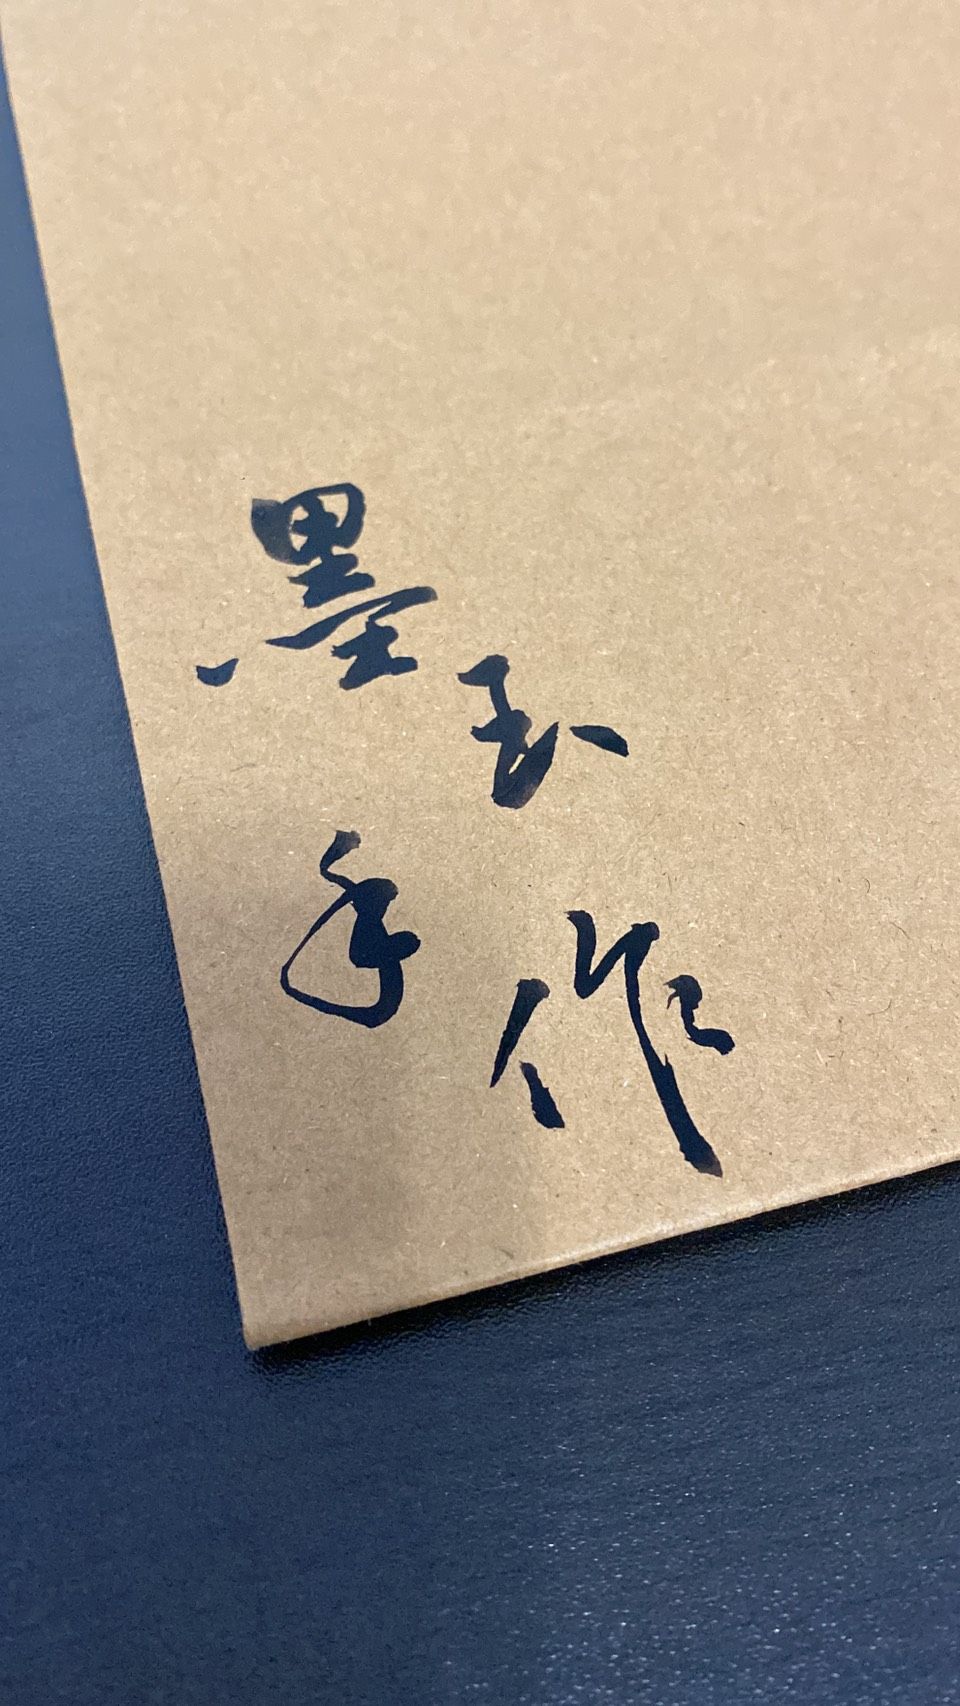 墨玉
手作